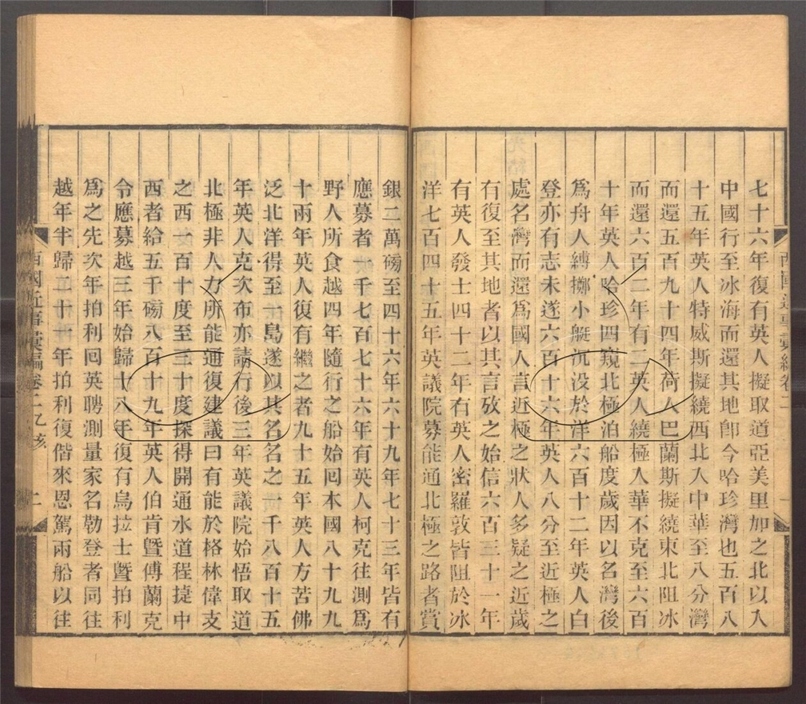 七十六年復有英人擬取道亞美里加之北以入
中國行至冰海而還其地卽今哈珍灣也五百八
十五年英人特威斯擬繞西北入中華至八分灣
而還五百九十四年荷人巴蘭斯擬繞東北阻冰
而還六百二年有二英人繞極人華不克至六百
十年英人哈珍四窺北極泊船度歲因以名灣後
爲舟人縛擲小艇沉没於洋六百十二年英人白
登亦有志未遂六百十六年英人八分至近極之
處名灣而還爲國人言近極之狀人多疑之近歲
有復至其地者以其言攷之始信六百三十一年
有英人發士四十二年有英人密羅敦皆阻於冰
洋七百四十五年英議院募能通北極之路者賞
西國近事彙編卷二
銀二萬磅至四十六年六十九年七十三年皆有
應募者一千七百七十六年有英人柯克往測爲
野人所食越四年隨行之船始回本國八十九九
十兩年英人復有繼之者九十五年英人方苦佛
泛北洋得至一島遂以其名名之一千八百十五
年英人克次布亦請行後三年英議院始悟取道
北極非人力所能通復建議曰有能於格林偉支
之西一百十度至三十度探得開通水道程捷中
西者給五千磅八百十九年英人伯肯暨傅蘭克
令應募越三年始歸十八年復有烏拉士暨拍利
爲之先次年拍利回英聘測量家名勒登者同往
越年半歸二十一年拍利復偕來恩駕兩船以往
西國近事彙編卷二 乙亥